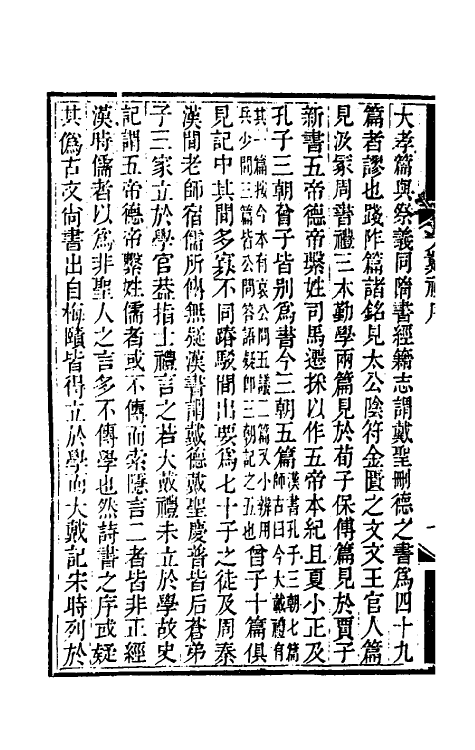 大孝篇與祭義同隋書經籍志謂戴聖刪德之書爲四十九
篇者謬也踐阼篇諸銘見太公陰符金匱之文文王官人篇
見汲冢周書禮三本勤學兩篇見於荀子保傳篇見於賈子
新書五帝德帝繫姓司馬遷採以作五帝本紀且夏小正及
孔子三朝曾子皆別爲書今三朝五篇漢書孔子三朝七篇師古曰今大戴禮有
其一篇按今本有哀公問五議二篇又小辨用兵少問三篇皆公問答語疑卽三朝記之五也曾子十篇俱
見記中其間多寡不同踳駁間出要爲七十子之徒及周秦
漢間老師宿儒所傳無疑漢書謂戴德戴聖慶普皆后蒼弟
子三家立於學官蓋指士禮言之若大戴禮未立於學故史
記謂五帝德帝繫姓儒者或不傳而索隱言二者皆非正經
漢時儒者以爲非聖人之言多不傳學也然詩書之序或疑
其僞古文尙書出自梅賾皆得立於學而大戴記宋時列於